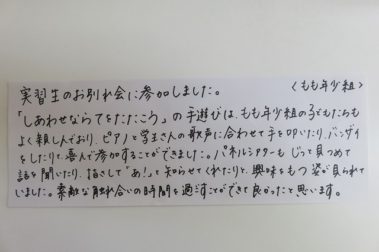 実習生のお別れ会に参加しました。 〈もも年少組〉
「しあわせならてをたたこう」の手遊びは、もも年少組の子どもたちも
よく親しんでおり、ピアノと学生さんの歌声に合わせて手を叩いたり、バンザイ
をしたりと、喜んで参加することができました。パネルシアターもじっと見つめて
話を聞いたり、指さして"あ!"と知らせてくれたりと、興味をもつ姿が見られて
いました。素敵な触れ合いの時間を過すことができて良かったと思います。